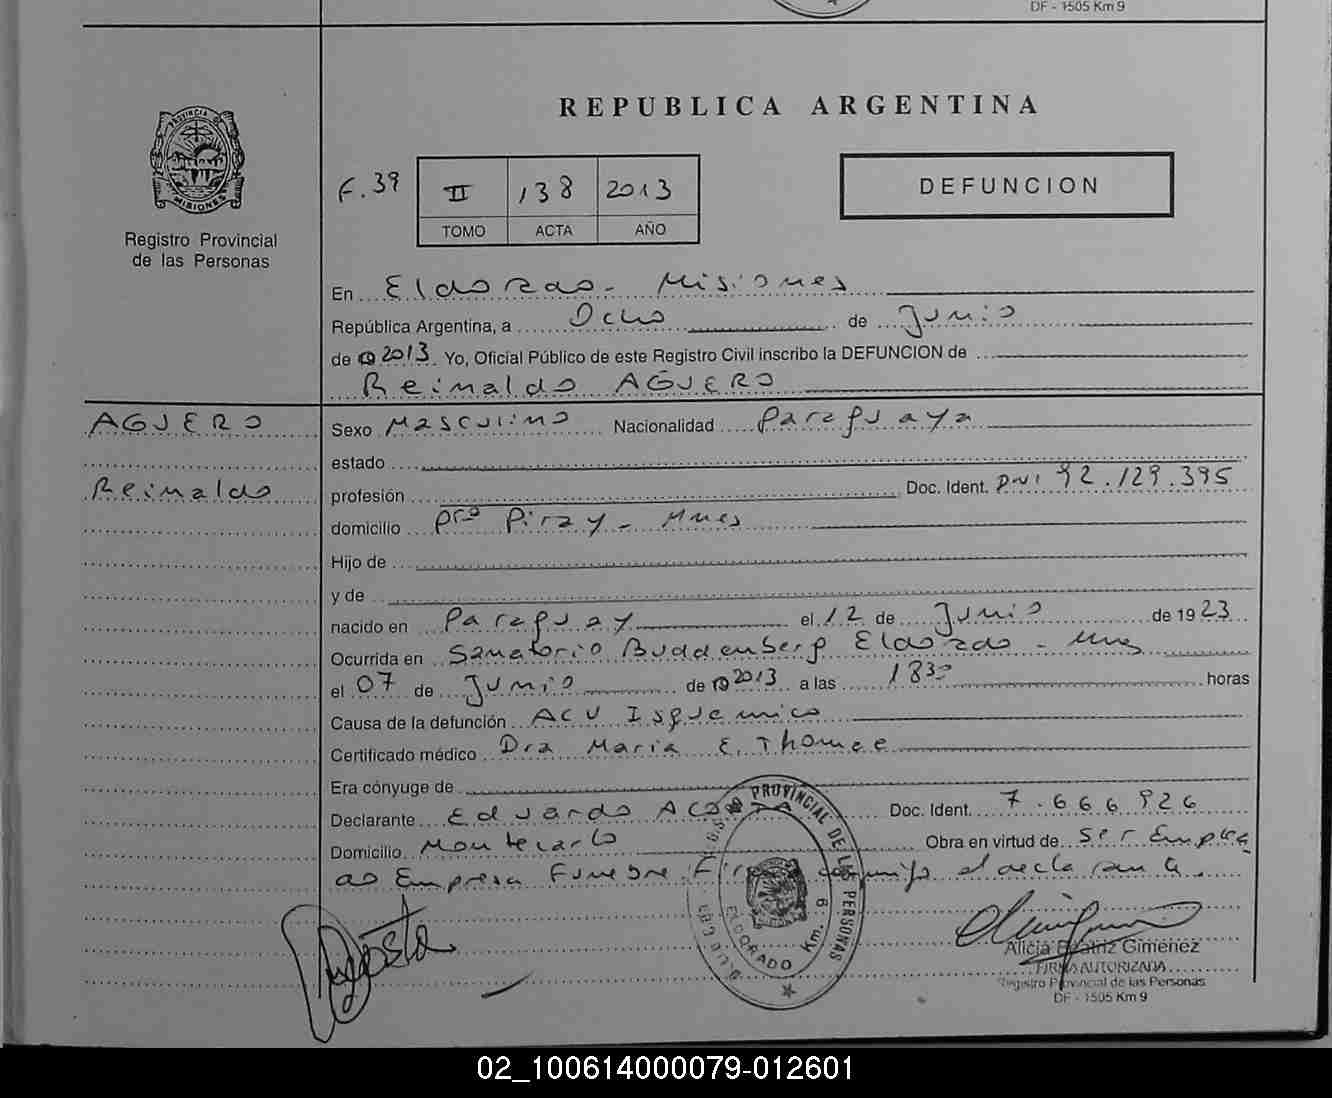 DF - 1505 Km 9
REPUBLICA ARGENTINA
PROVINCIA DE
MISIONES
Registro Provincial
de las Personas
F. 39
II 138 2013
TOMO ACTA AÑO
DEFUNCION
En Eldorado - Misiones
República Argentina, a Ocho de Junio
de 2013 Yo, Oficial Público de este Registro Civil inscribo la DEFUNCION de
Reinaldo AGUERO
AGUERO
Reinaldo
Sexo Masculino Nacionalidad Paraguaya
estado
profesión Doc. Ident. DNI 92.129.395
domicilio Pto Piray - Mnes
Hijo de
y de
nacido en Paraguay el 12 de Junio de 1923
Ocurrida en Sanatorio Buddenberg Eldorado - Mnes
el 07 de Junio de 2013 a las 1830 horas
Causa de la defunción ACV Isquemico
Certificado médico Dra Maria E. Thomee
Era cónyuge de
Declarante Eduardo ACOSTA Doc. Ident. 7.666.926
Domicilio Montecarlo Obra en virtud de Ser Emplea
do Empresa Funebre. Firma conmigo el declarante.
PROVINCIAL DE LAS PERSONAS
ELDORADO Km. 9
Alicia Beatriz Gimenez
FIRMA AUTORIZADA
Registro Provincial de las Personas
DF - 1505 Km 9
02_100614000079-012601